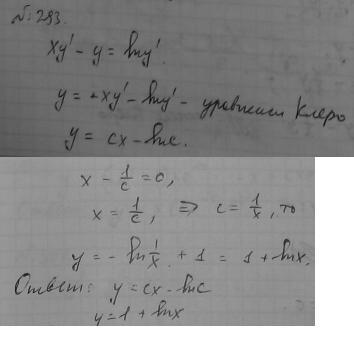 № 293.
xy' - y = lny'.
y = xy' - lny' - уравнение Клеро
y = cx - lnc.
x - 1/c = 0,
x = 1/c, ⇒ c = 1/x, то
y = - ln 1/x + 1 = 1 + lnx.
Ответ: y = cx - lnc
y = 1 + lnx